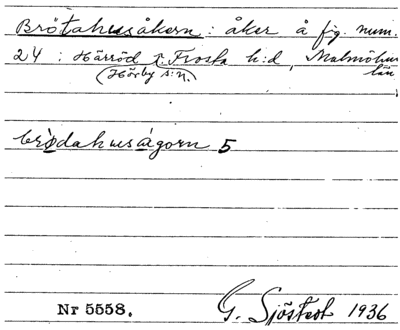 Brötahusåkern : åker å fig. num.
24 : Härröd i Frosta h:d, Malmöhus
(Hörby s:n.) län
brödahusågorn 5
Nr 5558. G. Sjöstedt 1936